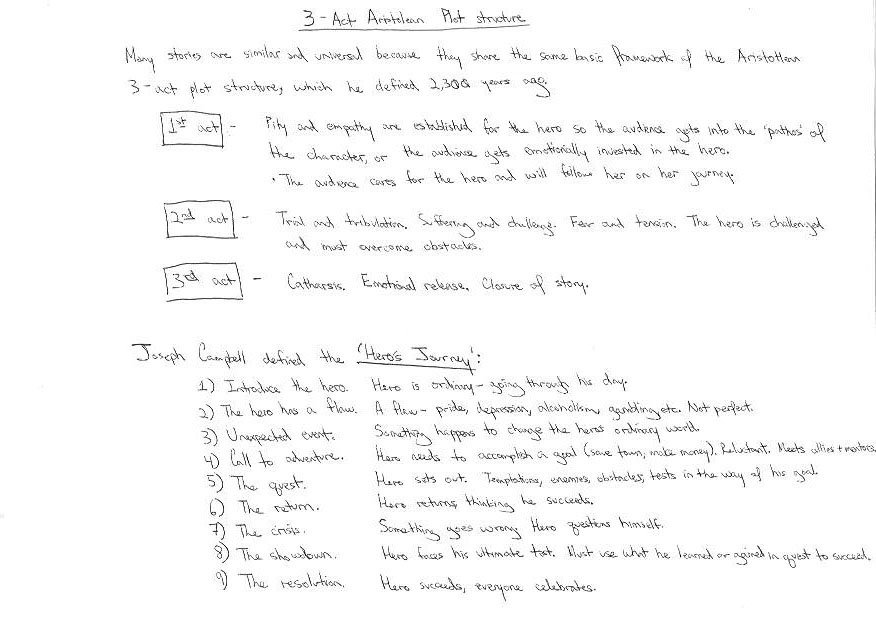 3-Act Aristolean Plot structure
Many stories are similar and universal because they share the same basic framework of the Aristotlean
3-act plot structure, which he defined 2,300 years ago.
1st act - Pity and empathy are established for the hero so the audience gets into the 'pathos' of
the character, or the audience gets emotionally invested in the hero.
· The audience cares for the hero and will follow her on her journey.
2nd act - Trial and tribulation. Suffering and challenge. Fear and tension. The hero is challenged
and must overcome obstacles.
3rd act - Catharsis. Emotional release. Closure of story.
Joseph Campbell defined the 'Hero's Journey':
1) Introduce the hero. Hero is ordinary - going through his day.
2) The hero has a flaw. A flaw - pride, depression, alcoholism, gambling etc. Not perfect.
3) Unexpected event. Something happens to change the heros ordinary world.
4) Call to adventure. Hero needs to accomplish a goal (save town, make money). Reluctant. Meets allies + mentors.
5) The quest. Hero sets out. Temptations, enemies, obstacles, tests in the way of his goal.
6) The return. Hero returns, thinking he succeeds.
7) The crisis. Something goes wrong. Hero questions himself.
8) The showdown. Hero faces his ultimate test. Must use what he learned or gained in quest to succeed.
9) The resolution. Hero succeeds, everyone celebrates.